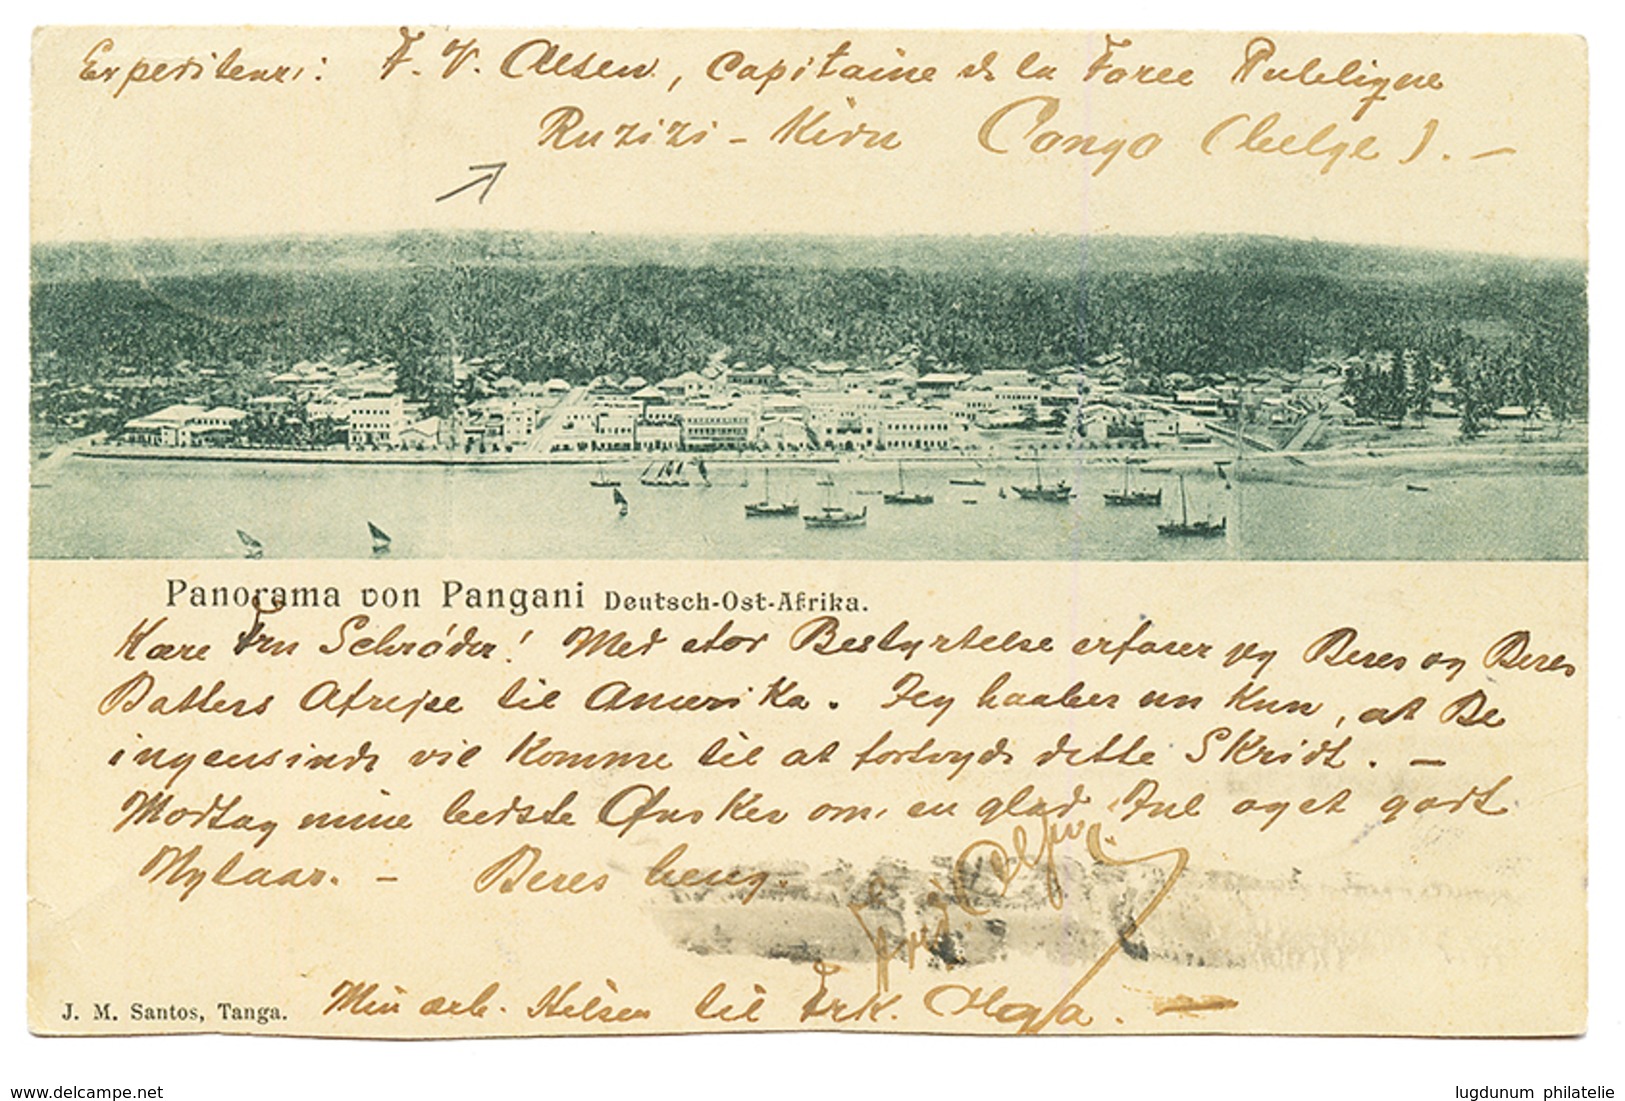 Expediteur: F. V. Olsen, Capitaine de la Force Publique
Ruzizi - Kivu Congo (belge). -
Panorama von Pangani Deutsch-Ost-Afrika.
Kære Fru Schrøder! Med stor Bestyrtelse erfarer jeg Deres og Deres
Datters Afrejse til Amerika. Jeg haaber nu kun, at De
ingensinde vil komme til at fortryde dette Skridt. -
Modtag mine bedste Ønsker om en glad Jul og et godt
Nytaar. - Deres heng.
Olsen
J. M. Santos, Tanga.
Min ærb. Hilsen til Frk. Olga. -
www.delcampe.net
lugdunum philatelie